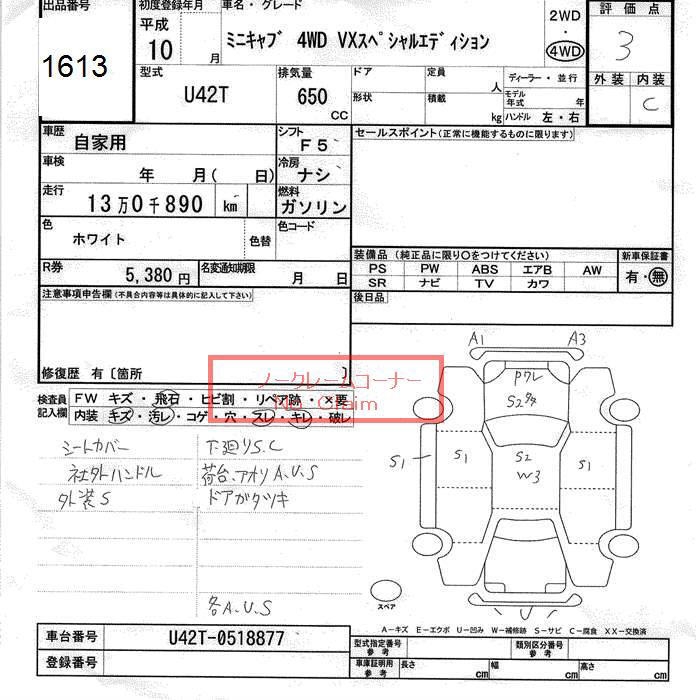 出品番号 初度登録年月 車名・グレード 評価点
1613 平成 10 月 ミニキャブ 4WD VXスペシャルエディション 2WD ・ 4WD 3
型式 排気量 ドア 定員 人 ディーラー・並行 外装 内装
U42T 650 CC 形状 積載 kg モデル年式 年 ハンドル 左・右 C
車歴 自家用 シフト F5 セールスポイント(正常に機能するものに限ります)
車検 年 月( 日) 冷房 ナシ
走行 13万0千890 km 燃料 ガソリン
色 ホワイト 色替 色コード
R券 5,380円 名変通知期限 月 日
装備品 (純正品に限り○をつけてください) 新車保証書
PS PW ABS エアB AW 有・無
SR ナビ TV カワ
注意事項申告欄(不具合内容等は具体的に記入して下さい) 後日品
修復歴 有〔箇所 〕
ノークレームコーナー
No Claim
検査員記入欄 FW キズ・飛石・ヒビ割・リペア跡・×要
内装・キズ・汚レ・コゲ・穴・スレ・キレ・破レ
シートカバー 下廻りS.C
社外ハンドル 荷台、アオリA.U.S
外装S ドアガタツキ
各A.U.S
A1 A3
PワレS2
S1 S1 S2 S1
W3
U
スペア
A-キズ E-エクボ U-凹み W-補修跡 S-サビ C-腐食 XX-交換済
車台番号 U42T-0518877 型式指定番号 参考 類別区分番号 参考
登録番号 車庫証明用 参考 長さ cm 幅 cm 高さ cm